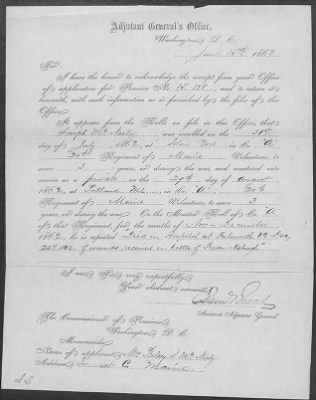 Adjutant General's Office,
Washington, D. C.
June 15th, 1863
Sir:
I have the honor to acknowledge the receipt from your Office
of application for Pension No. 15., and to return it
herewith, with such information as is furnished by the files of this
Office.
It appears from the Rolls on file in this Office that
Joseph Mc was enrolled on the
day of July, 1862, at, Me in Co. "A"
20th Regiment of Maine Volunteers, to
serve 3 years, or during the war, and mustered into
service as a Private on the 29th day of August
1862, at Portland Me., in Co. "A" 20th
Regiment of Maine Volunteers, to serve 3
years, or during the war. On the Muster Roll of Co. "A"
of that Regiment, for the months of Nov & December
1862, he is reported Died in Hospital at Falmouth Va Dec
20th 1862 of wounds received in battle of
I am, Sir, very respectfully,
Your obedient servant,
Assistant Adjutant General
The Commissioner of Pensions
Washington, D. C.
Memoranda.
Name of applicant, Mc
Address, Somerset C. Maine.